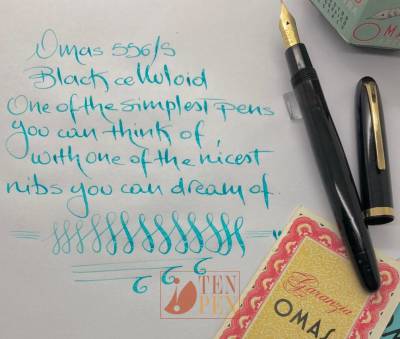 Omas 556/S
Black celluloid
One of the simplest pens
you can think of,
with one of the nicest
nibs you can dream of.
TEN
PEN
Garanzia
OMAS
OMA